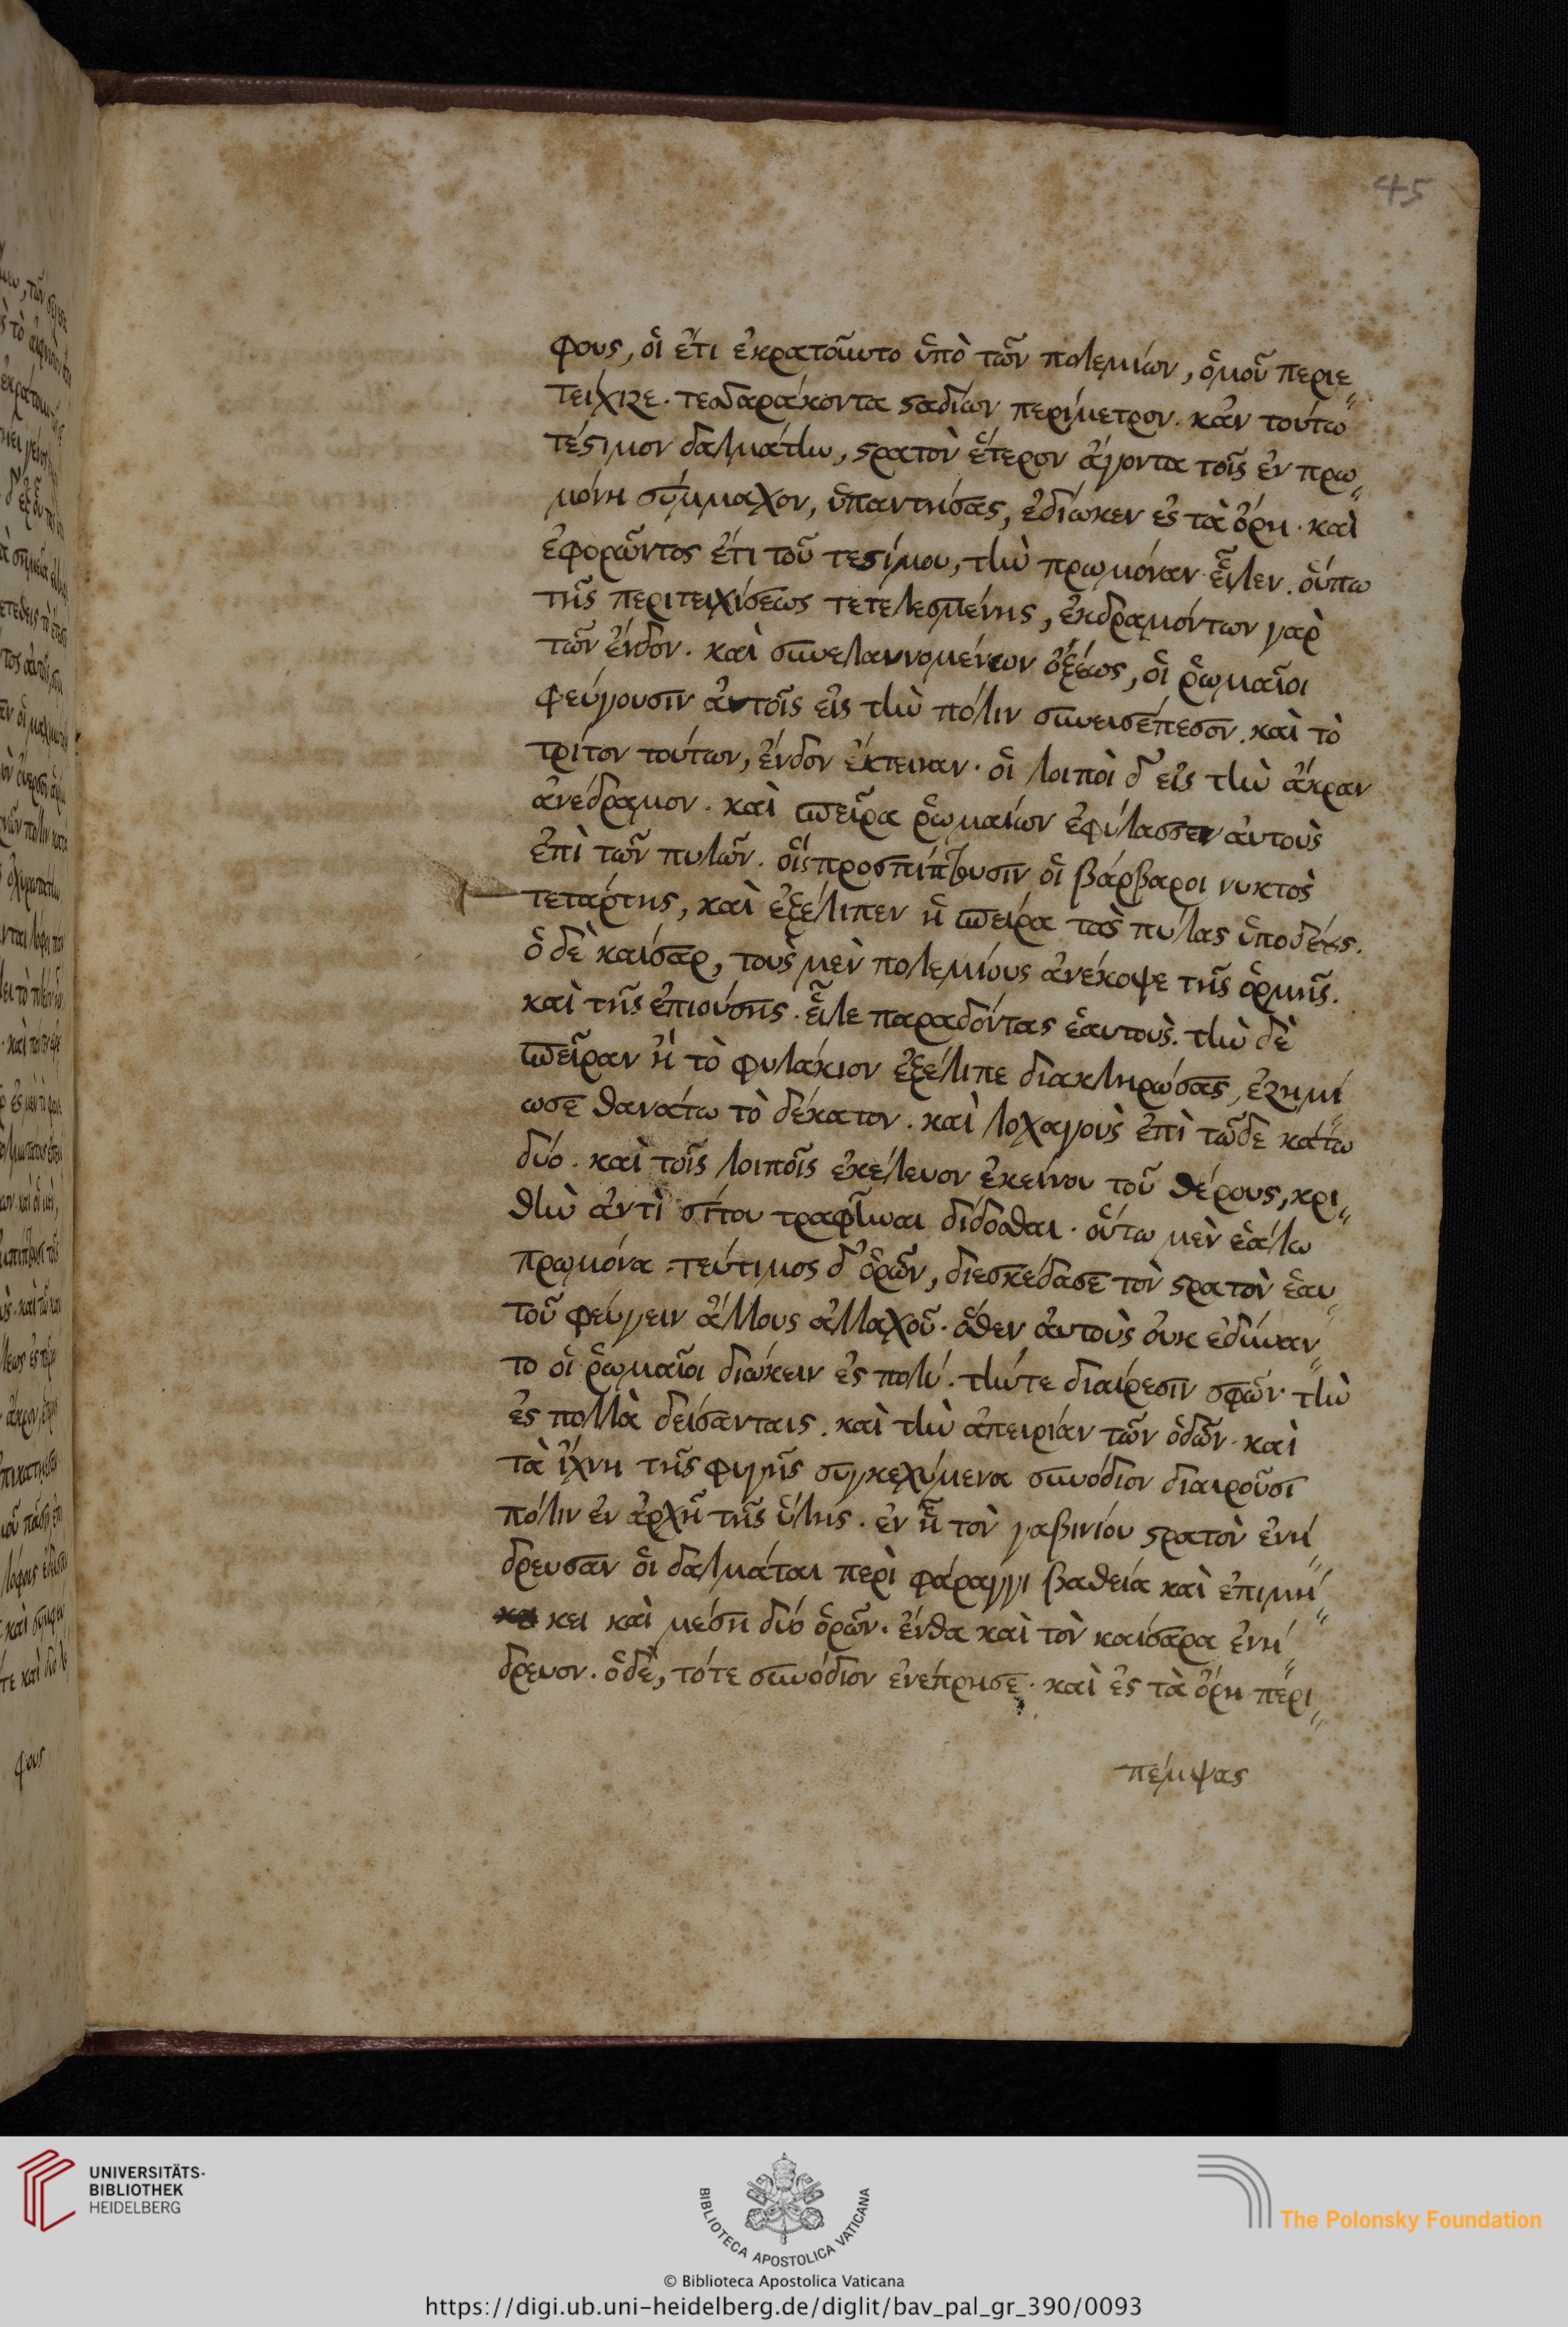 45
φους, οἱ ἔτι ἐκρατοῦντο ὑπὸ τῶν πολεμίων, ὁμοῦ περιε
τείχιζε. τεσσαράκοντα σταδίων περίμετρον. κἀν τούτω
τέστιμον δαλμάτην, στρατὸν ἕτερον ἄγοντα τοῖς ἐν πρω
μόνη σύμμαχον, ὑπαντήσας, ἐδίωκεν ἐς τὰ ὄρη. καὶ
ἐφορῶντος ἔτι τοῦ τεστίμου, τὴν πρωμόναν εἷλεν. οὔπω
τῆς περιτειχίσεως τετελεσμένης, ἐκδραμόντων γαρ
τῶν ἔνδον. καὶ συνελαυνομένων ὀξέως, οἱ ῥωμαῖοι
φεύγουσιν αὐτοῖς εἰς τὴν πόλιν συνεισέπεσον. καὶ τὸ
τρίτον τούτων, ἔνδον ἔκτειναν. οἱ λοιποὶ δ' εἰς τὴν ἄκραν
ἀνέδραμον. καὶ σπεῖρα ῥωμαίων ἐφύλασσεν αὐτοὺς
ἐπὶ τῶν πυλῶν. οἷς προσπίπτουσιν οἱ βάρβαροι νυκτὸς
τετάρτης, καὶ ἐξέλιπεν ἡ σπείρα τὰς πύλας ὑποδεὴς.
ὁ δὲ καίσαρ, τοὺς μὲν πολεμίους ἀνέκοψε τῆς ὁρμῆς.
καὶ τῆς ἐπιούσης. εἷλε παραδόντας ἑαυτοὺς. τὴν δὲ
σπεῖραν ἣ τὸ φυλάκιον ἐξέλιπε διακληρώσας, ἐζημί
ωσε θανάτω τὸ δέκατον. καὶ λοχαγοὺς ἐπὶ τῶδε κάτω
δύο. καὶ τοῖς λοιποῖς ἐκέλευον ἐκείνου τοῦ θέρους, κρι
θὴν ἀντὶ σίτου τραφῆναι δίδοσθαι. οὕτω μὲν ἑάλω
πρωμόνα. τεύτιμος δ' ὁρῶν, διεσκέδασε τὸν στρατὸν ἑαυ
τοῦ φεύγειν ἄλλους ἀλλαχοῦ. ὅθεν αὐτοὺς οὐκ ἐδύναν
το οἱ ῥωμαῖοι διώκειν ἐς πολύ. τήν τε διαίρεσιν σφῶν τὴν
ἐς πολλὰ δείσανταις. καὶ τὴν ἀπειρίαν τῶν ὁδῶν. καὶ
τὰ ἴχνη τῆς φυγῆς συγκεχυμενα συνόδιον διαιροῦσι
πόλιν ἐν ἀρχῆ τῆς ὕλης. ἐν ἧ τὸν γαβινίου στρατὸν ἐνή
δρευσαν οἱ δαλμάται περὶ φάραγγι βαθεία καὶ ἐπιμή
κει καὶ μέση δύο ὁρῶν. ἔνθα καὶ τὸν καίσαρα ἐνή
δρευον. ὁδὲ, τότε συνόδιον ἐνέπρησε. καὶ ἐς τὰ ὄρη περι
πέμψας
φους
UNIVERSITÄTS-
BIBLIOTHEK
HEIDELBERG
BIBLIOTECA APOSTOLICA VATICANA
The Polonsky Foundation
© Biblioteca Apostolica Vaticana
https://digi.ub.uni-heidelberg.de/diglit/bav_pal_gr_390/0093